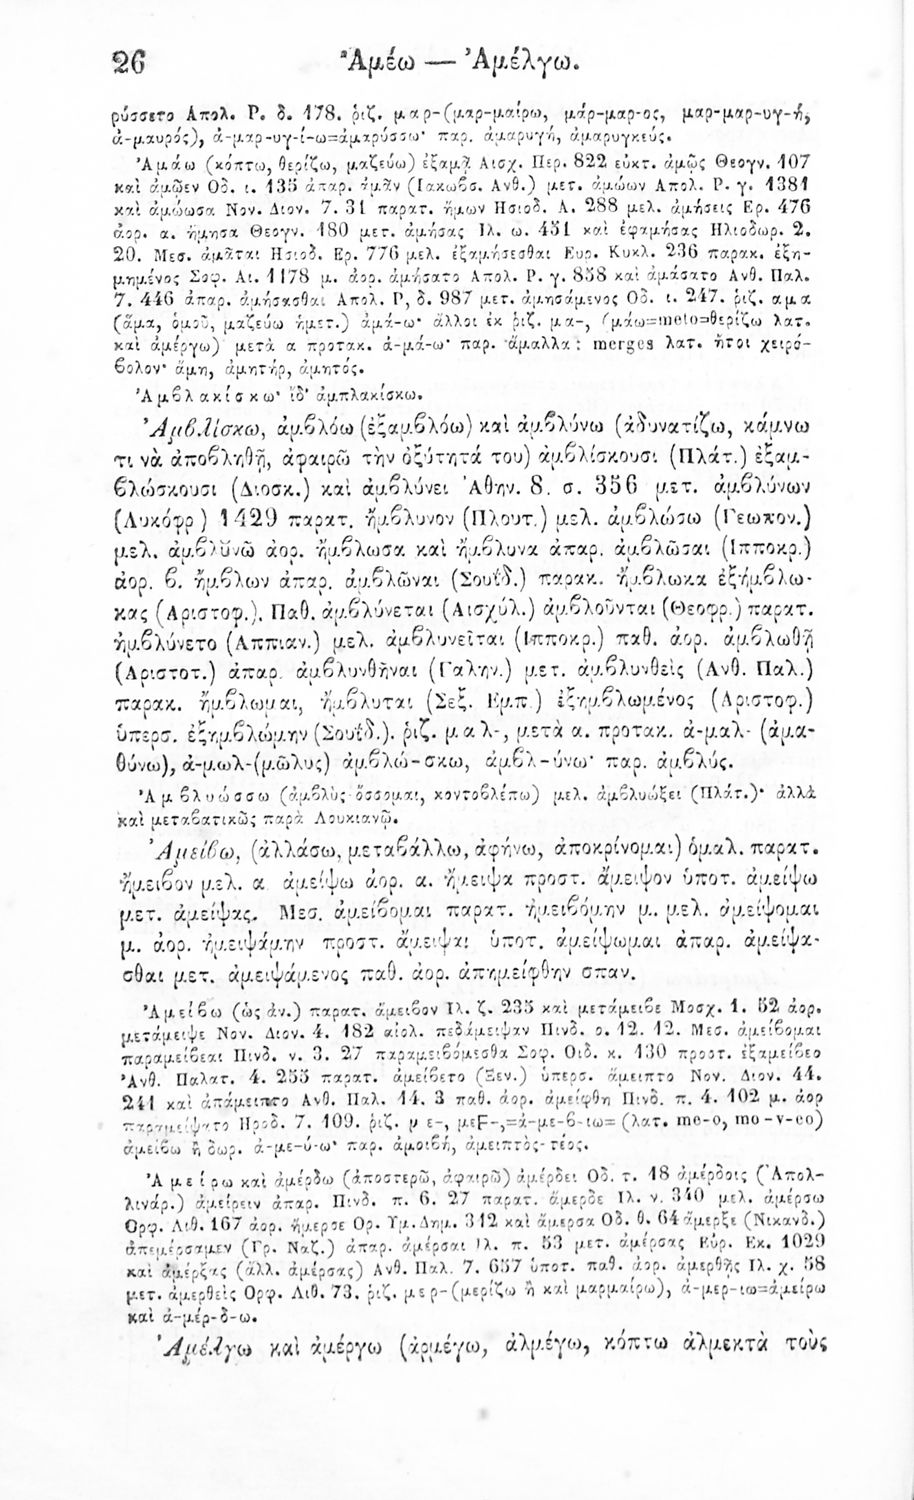 26 Ἀμέω — Ἀμέλγω.
ρύσσετο Απολ. Ρ. δ. 178. ῥιζ. μαρ-(μαρ-μαίρω, μάρ-μαρ-ος, μαρ-μαρ-υγ-ή,
ἀ-μαυρός), ἀ-μαρ-υγ-ί-ω=ἀμαρύσσω· παρ. ἀμαρυγή, ἀμαρυγκεύς.
Ἀμάω (κόπτω, θερίζω, μαζεύω) ἐξαμᾷ Αισχ. Περ. 822 εὐκτ. ἀμῷς Θεογν. 107
καὶ ἀμῷεν Οδ. ι. 135 ἀπαρ. ἀμᾶν (Ιακωβσ. Ανθ.) μετ. ἀμώων Απολ. Ρ. γ. 1381
καὶ ἀμώωσα Νον. Διον. 7. 31 παρατ. ἤμων Ησιοδ. Α. 288 μελ. ἀμήσεις Ερ. 476
ἀορ. α. ἤμησα Θεογν. 180 μετ. ἀμήσας Ιλ. ω. 451 καὶ ἐφαμήσας Ηλιοδωρ. 2.
20. Μεσ. ἀμᾶται Ησιοδ. Ερ. 776 μελ. ἐξαμήσεσθαι Ευρ. Κυκλ. 236 παρακ. ἐξη-
μημένος Σοφ. Αι. 1178 μ. ἀορ. ἀμήσατο Απολ. Ρ. γ. 858 καὶ ἀμάσατο Ανθ. Παλ.
7. 446 ἀπαρ. ἀμήσασθαι Απολ. Ρ, δ. 987 μετ. ἀμησάμενος Οδ. ι. 247. ῥιζ. αμα
(ἅμα, ὁμοῦ, μαζεύω ἡμετ.) ἀμά-ω· ἄλλοι ἐκ ῥιζ. μα-, (μάω=meto=θερίζω λατ.
καὶ ἀμέργω) μετὰ α προτακ. ἀ-μά-ω· παρ. ἄμαλλα: merges λατ. ἤτοι χειρό-
βολον· ἄμη, ἀμητήρ, ἀμητός.
Ἀμβλακίσκω· ἰδ' ἀμπλακίσκω.
Ἀμβλίσκω, ἀμβλόω (ἐξαμβλόω) καὶ ἀμβλύνω (ἀδυνατίζω, κάμνω
τι νὰ ἀποβληθῇ, ἀφαιρῶ τὴν ὀξύτητά του) ἀμβλίσκουσι (Πλάτ.) ἐξαμ-
βλώσκουσι (Διοσκ.) καὶ ἀμβλύνει Ἀθην. 8. σ. 356 μετ. ἀμβλύνων
(Λυκόφρ) 1429 παρατ. ἤμβλυνον (Πλουτ.) μελ. ἀμβλώσω (Γεωπον.)
μελ. ἀμβλυνῶ ἀορ. ἤμβλωσα καὶ ἤμβλυνα ἀπαρ. ἀμβλῶσαι (Ιπποκρ.)
ἀορ. β. ἤμβλων ἀπαρ. ἀμβλῶναι (Σουΐδ.) παρακ. ἤμβλωκα ἐξήμβλω-
κας (Αριστοφ.). Παθ. ἀμβλύνεται (Αισχύλ.) ἀμβλοῦνται (Θεοφρ.) παρατ.
ἠμβλύνετο (Αππιαν.) μελ. ἀμβλυνεῖται (Ιπποκρ.) παθ. ἀορ. ἀμβλωθῇ
(Αριστοτ.) ἀπαρ. ἀμβλυνθῆναι (Γαλην.) μετ. ἀμβλυνθεὶς (Ανθ. Παλ.)
παρακ. ἤμβλωμαι, ἤμβλυται (Σεξ. Εμπ.) ἐξημβλωμένος (Αριστοφ.)
ὑπερσ. ἐξημβλώμην (Σουΐδ.). ῥιζ. μαλ-, μετὰ α. προτακ. ἀ-μαλ- (ἀμα-
θύνω), ἀ-μωλ-(μῶλυς) ἀμβλώ-σκω, ἀμβλ-ύνω· παρ. ἀμβλύς.
Ἀμβλυώσσω (ἀμβλὺς ὄσσομαι, κοντοβλέπω) μελ. ἀμβλυώξει (Πλάτ.)· ἀλλὰ
καὶ μεταβατικῶς παρὰ Λουκιανῷ.
Ἀμείβω, (ἀλλάσω, μεταβάλλω, ἀφήνω, ἀποκρίνομαι) ὁμαλ. παρατ.
ἤμειβον μελ. α ἀμείψω ἀορ. α. ἤμειψα προστ. ἄμειψον ὑποτ. ἀμείψω
μετ. ἀμείψας. Μεσ. ἀμείβομαι παρατ. ἠμειβόμην μ. μελ. ἀμείψομαι
μ. ἀορ. ἠμειψάμην προστ. ἄμειψαι ὑποτ. ἀμείψωμαι ἀπαρ. ἀμείψα-
σθαι μετ. ἀμειψάμενος παθ. ἀορ. ἀπημείφθην σπαν.
Ἀμείβω (ὡς ἀν.) παρατ. ἄμειβον Ιλ. ζ. 235 καὶ μετάμειβε Μοσχ. 1. 52 ἀορ.
μετάμειψε Νον. Διον. 4. 182 αἰολ. πεδάμειψαν Πινδ. ο. 12. 12. Μεσ. ἀμείβομαι
παραμείβεαι Πινδ. ν. 3. 27 παραμειβόμεσθα Σοφ. Οιδ. κ. 130 προστ. ἐξαμείβεο
Ἀνθ. Παλατ. 4. 255 παρατ. ἀμείβετο (Ξεν.) ὑπερσ. ἄμειπτο Νον. Διον. 44.
241 καὶ ἀπάμειπτο Ανθ. Παλ. 14. 3 παθ. ἀορ. ἀμείφθη Πινδ. π. 4. 102 μ. ἀορ
παραμείψατο Ηροδ. 7. 109. ῥιζ. με-, μεϝ-,=ἀ-με-β-ιω= (λατ. me-o, mo-v-eo)
ἀμείβω ἢ δωρ. ἀ-με-ύ-ω· παρ. ἀμοιβή, ἀμειπτὸς-τέος.
Ἀμείρω καὶ ἀμέρδω (ἀποστερῶ, ἀφαιρῶ) ἀμέρδει Οδ. τ. 18 ἀμέρδοις (Ἀπολ-
λινάρ.) ἀμείρειν ἀπαρ. Πινδ. π. 6. 27 παρατ. ἄμερδε Ιλ. ν. 340 μελ. ἀμέρσω
Ορφ. Λιθ. 167 ἀορ. ἤμερσε Ορ. Υμ. Δημ. 312 καὶ ἄμερσα Οδ. θ. 64 ἄμερξε (Νικανδ.)
ἀπεμέρσαμεν (Γρ. Ναζ.) ἀπαρ. ἀμέρσαι Ιλ. π. 53 μετ. ἀμέρσας Εὐρ. Εκ. 1029
καὶ ἀμέρξας (ἀλλ. ἀμέρσας) Ανθ. Παλ. 7. 657 ὑποτ. παθ. ἀορ. ἀμερθῇς Ιλ. χ. 58
μετ. ἀμερθεὶς Ορφ. Λιθ. 73. ῥιζ. μερ-(μερίζω ἢ καὶ μαρμαίρω), ἀ-μερ-ιω=ἀμείρω
καὶ ἀ-μέρ-δ-ω.
Ἀμέλγω καὶ ἀμέργω (ἀρμέγω, ἀλμέγω, κόπτω ἀλμεκτὰ τοὺς